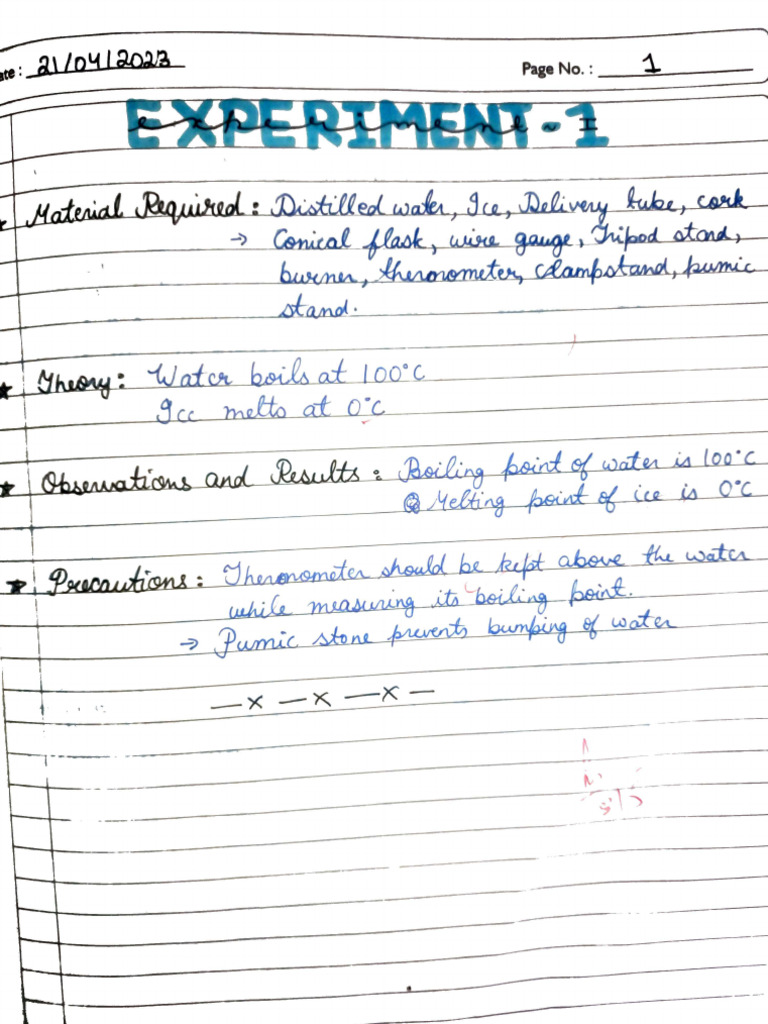 ate : 21/04/2023 Page No. : 1
EXPERIMENT-1
experiment - I
★ Material Required : Distilled water, Ice, Delivery tube, cork
→ Conical flask, wire gauge, Tripod stand,
burner, theronometer, clampstand, pumic
stand.
★ Theory : Water boils at 100°C
Ice melts at 0°C
★ Observations and Results : Boiling point of water is 100°C
Melting point of ice is 0°C
★ Precautions : Theronometer should be kept above the water
while measuring its boiling point.
→ Pumic stone prevents bumping of water
— x — x — x —